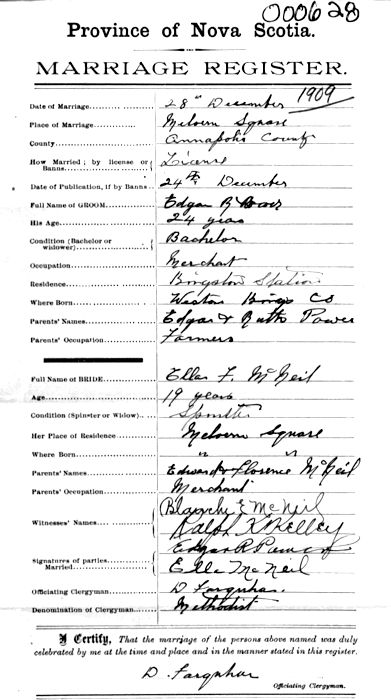 000628
Province of Nova Scotia.
MARRIAGE REGISTER.
1909
Date of Marriage 28th December
Place of Marriage Melvern Square
County Annapolis County
How Married; by license or Banns License
Date of Publication, if by Banns 24th December
Full Name of GROOM Edgar R Power
His Age 24 years
Condition (Bachelor or widower) Bachelor
Occupation Merchant
Residence Kingston Station
Where Born Weston Kings Co
Parents' Names Edgar & Ruth Power
Parents' Occupation Farmers
Full Name of BRIDE Ella F. McNeil
Age 19 years
Condition (Spinster or Widow) Spinster
Her Place of Residence Melvern Square
Where Born " "
Parents' Names Edward & Florence McNeil
Parents' Occupation Merchant
Witnesses' Names Blanche E McNeil
Ralph Kelley
Signatures of parties Married Edgar R Power
Ella McNeil
Officiating Clergyman D Farquhar
Denomination of Clergyman Methodist
I Certify, That the marriage of the persons above named was duly
celebrated by me at the time and place and in the manner stated in this register.
D. Farquhar
Officiating Clergyman.